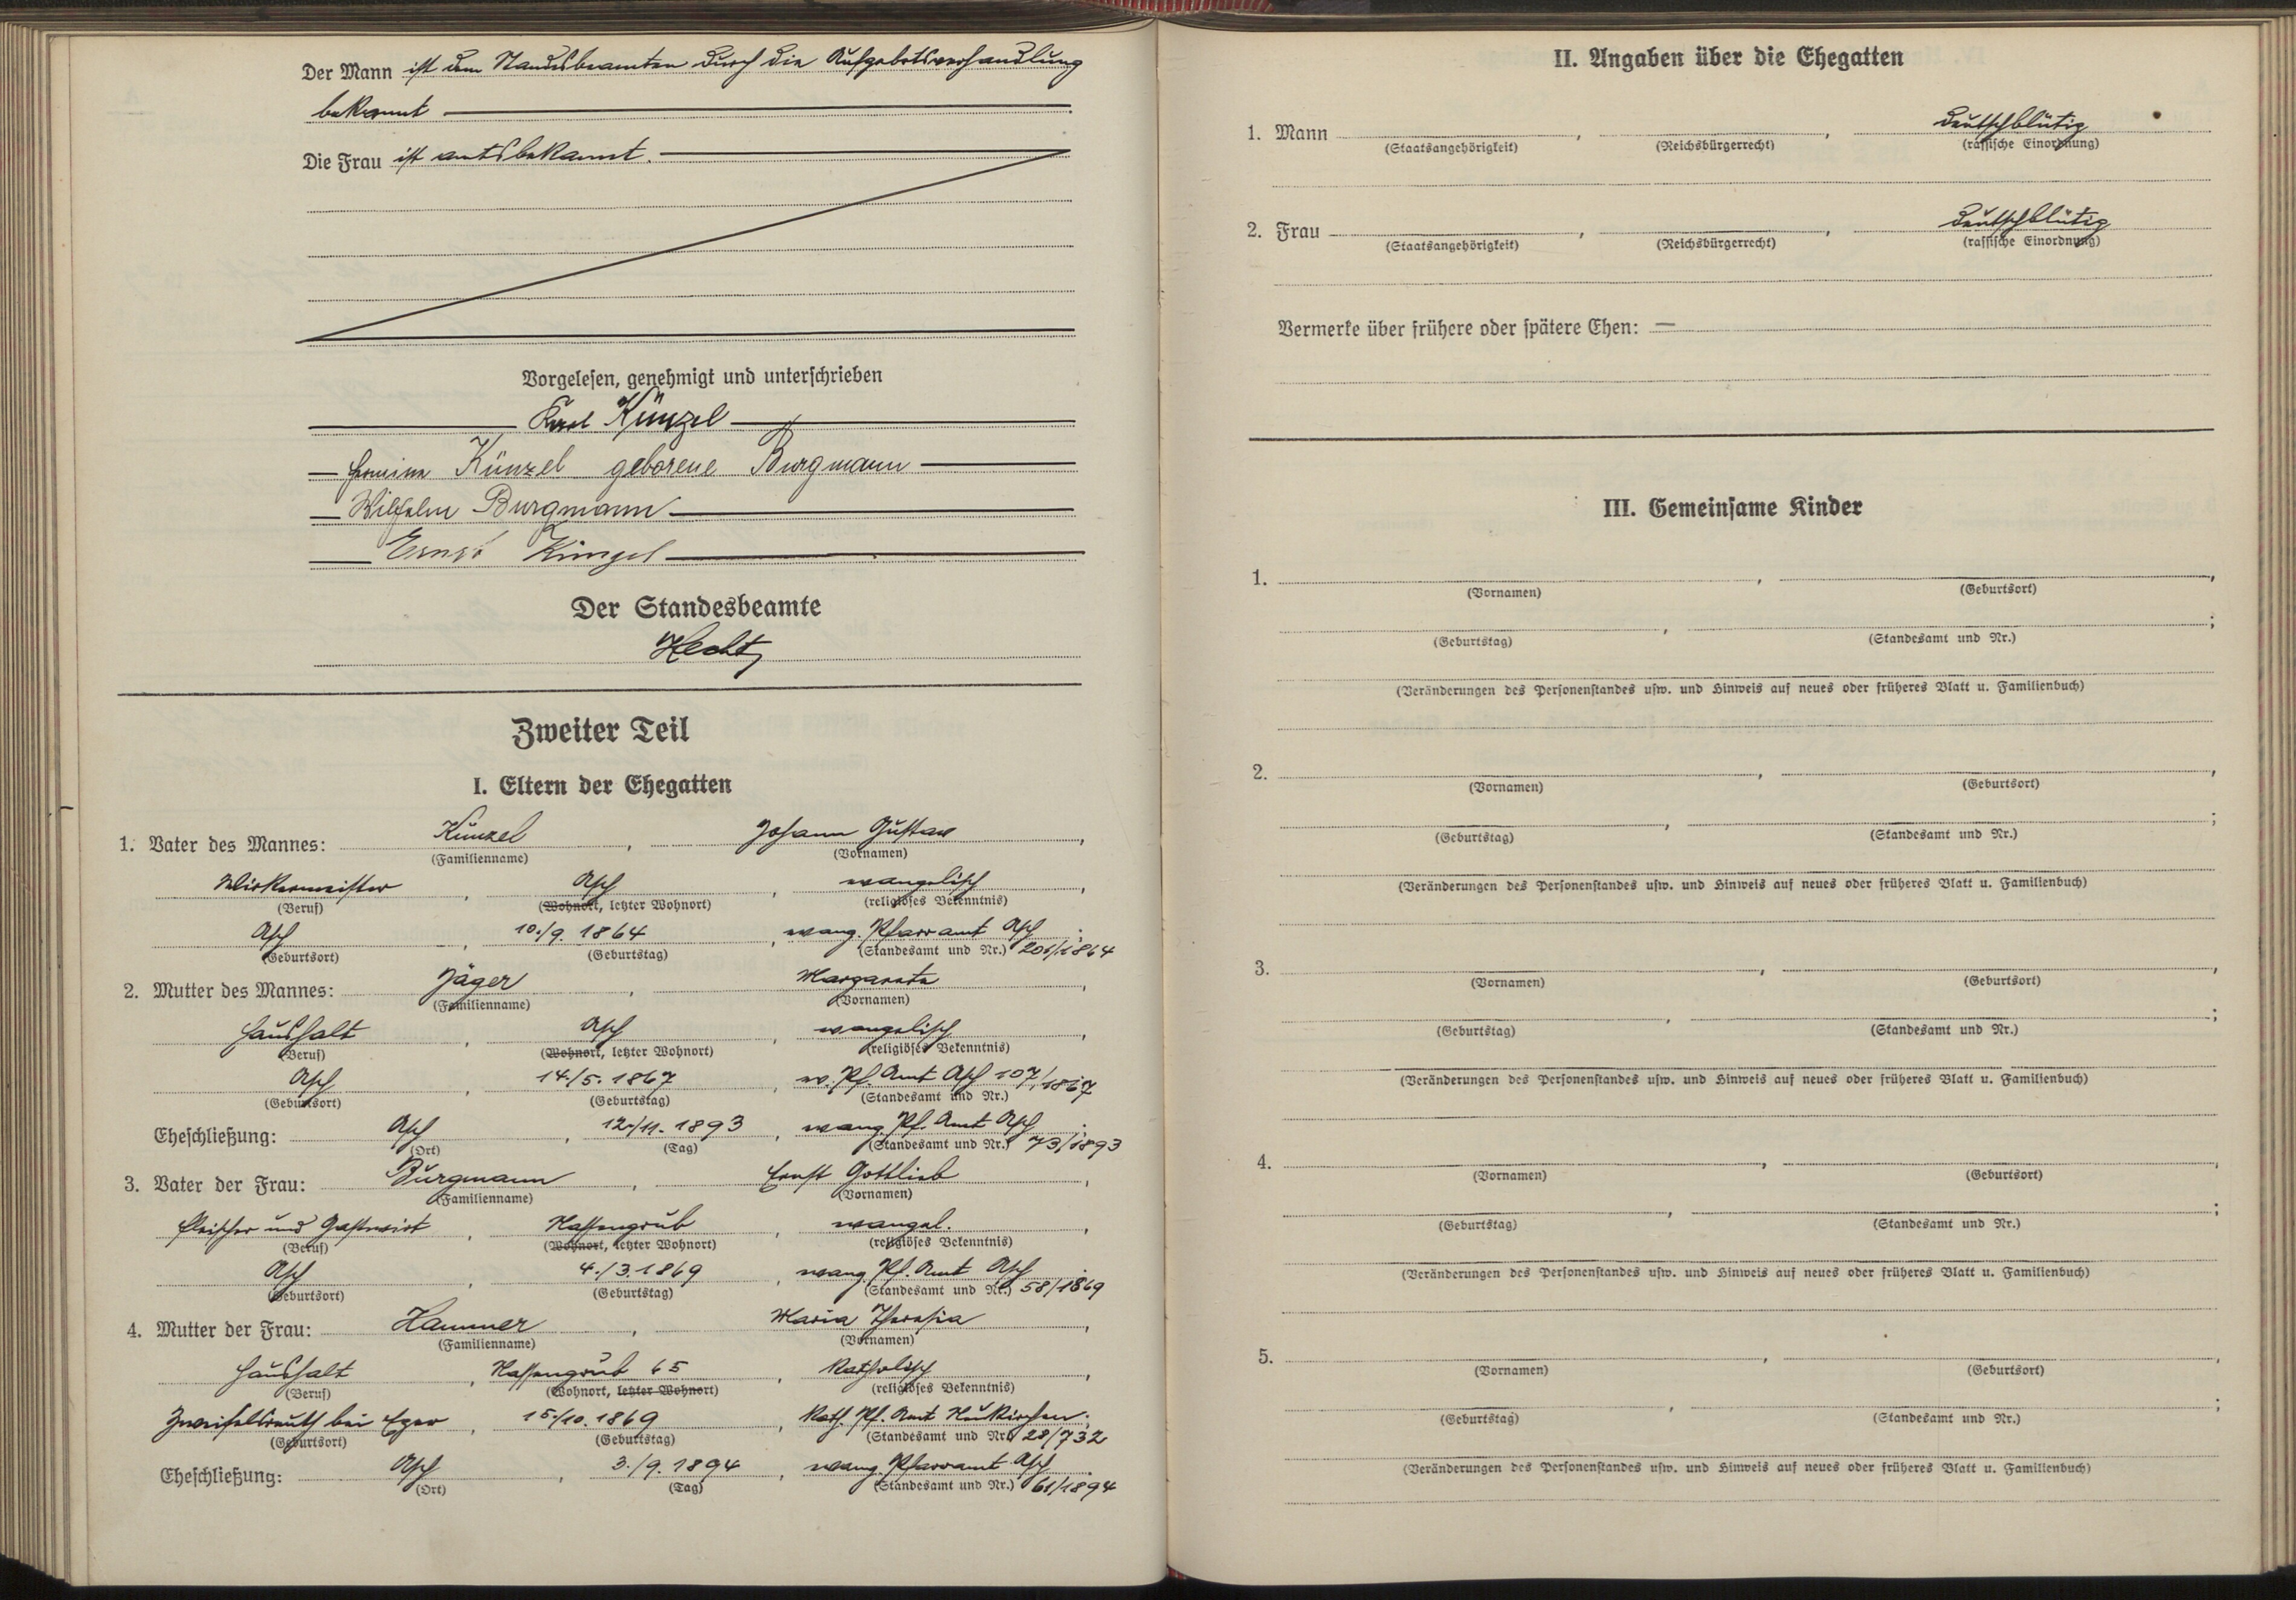 Der Mann ist dem Standesbeamten durch die Aufgebotsverhandlung
bekannt
Die Frau ist amtsbekannt.
Vorgelesen, genehmigt und unterschrieben
Karl Künzel
Künzel geborene Burgmann
Wilhelm Burgmann
Ernst Künzel
Der Standesbeamte
Hecht
Zweiter Teil
I. Eltern der Ehegatten
1. Vater des Mannes: Künzel, Johann Gustav,
(Familienname) (Vornamen)
Wirkermeister, Asch, evangelisch,
(Beruf) (Wohnort, letzter Wohnort) (religiöses Bekenntnis)
Asch, 10./9. 1864, evang. Pfarramt Asch;
(Geburtsort) (Geburtstag) (Standesamt und Nr.) 201/1864
2. Mutter des Mannes: Jäger, Margareta,
(Familienname) (Vornamen)
Haushalt, Asch, evangelisch,
(Beruf) (Wohnort, letzter Wohnort) (religiöses Bekenntnis)
Asch, 14./5. 1867, ev. Pf. Amt Asch 107/1867
(Geburtsort) (Geburtstag) (Standesamt und Nr.)
Eheschließung: Asch, 12./11. 1893, evang. Pf. Amt Asch.
(Ort) (Tag) (Standesamt und Nr.) 73/1893
3. Vater der Frau: Burgmann, Ernst Gottlieb,
(Familienname) (Vornamen)
Fleischer und Gastwirt, Nassengrub, evangel.,
(Beruf) (Wohnort, letzter Wohnort) (religiöses Bekenntnis)
Asch, 4./3. 1869, evang. Pf. Amt Asch;
(Geburtsort) (Geburtstag) (Standesamt und Nr.) 58/1869
4. Mutter der Frau: Hammer, Maria Theresia,
(Familienname) (Vornamen)
Haushalt, Nassengrub 65, katholisch,
(Beruf) (Wohnort, letzter Wohnort) (religiöses Bekenntnis)
bei Eger, 15./10. 1869, Kath. Pf. Amt Neukirchen;
(Geburtsort) (Geburtstag) (Standesamt und Nr.) 28/732
Eheschließung: Asch, 3./9. 1894, evang. Pfarramt Asch.
(Ort) (Tag) (Standesamt und Nr.) 61/1894
II. Angaben über die Ehegatten
1. Mann , , deutschblütig
(Staatsangehörigkeit) (Reichsbürgerrecht) (rassische Einordnung)
2. Frau , , deutschblütig
(Staatsangehörigkeit) (Reichsbürgerrecht) (rassische Einordnung)
Vermerke über frühere oder spätere Ehen: —
III. Gemeinsame Kinder
1. , ,
(Vornamen) (Geburtsort)
, ;
(Geburtstag) (Standesamt und Nr.)
(Veränderungen des Personenstandes usw. und Hinweis auf neues oder früheres Blatt u. Familienbuch)
2. , ,
(Vornamen) (Geburtsort)
, ;
(Geburtstag) (Standesamt und Nr.)
(Veränderungen des Personenstandes usw. und Hinweis auf neues oder früheres Blatt u. Familienbuch)
3. , ,
(Vornamen) (Geburtsort)
, ;
(Geburtstag) (Standesamt und Nr.)
(Veränderungen des Personenstandes usw. und Hinweis auf neues oder früheres Blatt u. Familienbuch)
4. , ,
(Vornamen) (Geburtsort)
, ;
(Geburtstag) (Standesamt und Nr.)
(Veränderungen des Personenstandes usw. und Hinweis auf neues oder früheres Blatt u. Familienbuch)
5. , ,
(Vornamen) (Geburtsort)
, ;
(Geburtstag) (Standesamt und Nr.)
(Veränderungen des Personenstandes usw. und Hinweis auf neues oder früheres Blatt u. Familienbuch)